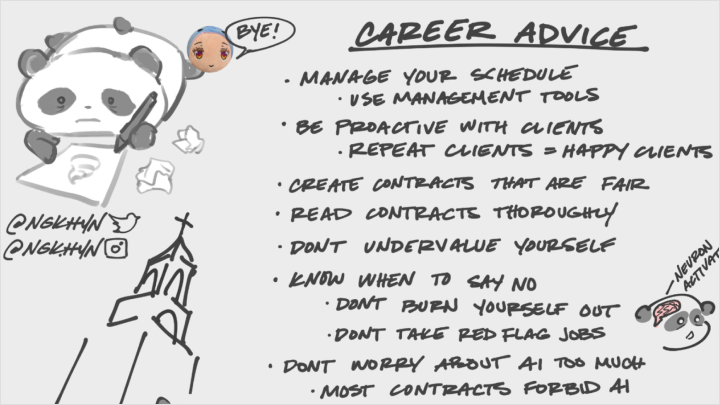 BYE!
CAREER ADVICE
• MANAGE YOUR SCHEDULE
• USE MANAGEMENT TOOLS
• BE PROACTIVE WITH CLIENTS
• REPEAT CLIENTS = HAPPY CLIENTS
• CREATE CONTRACTS THAT ARE FAIR
• READ CONTRACTS THOROUGHLY
• DONT UNDERVALUE YOURSELF
• KNOW WHEN TO SAY NO
• DONT BURN YOURSELF OUT
• DONT TAKE RED FLAG JOBS
• DONT WORRY ABOUT AI TOO MUCH
• MOST CONTRACTS FORBID AI
@NGKHYN
@NGKHYN
NEURON
ACTIVAT